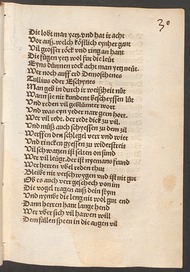 30
Die lobt man yetz vnd hat ir acht
Vor auß, welch köstlich eynher gat
Vil grosser röck vnd ring an hant
Die fügen yetz wol für die leüt
Eyns dünnen rock acht man yetz neüt
Wer noch auff erd Demosthenes
Tullius oder Eschynes
Man geb in durch ir weißheit nüt
Wann sie nit kundent bescheyssen lüt
Vnd reden vil geblümter wort
Vnd was eyn yeder nare gern hort
Wer vil redt, der redt dick zu vil
Vnd muß auch schyessen zu dem zil
Werffen den schlegel verr vnd wite
Vnd rincken gyessen zu widerstrite
Vil schwätzen ist selten on sünd
Wer vil leügt, der ist nyemans fründ
Wer herren übel reden thut
Bleibt nit verschwygen vnd ist nit gut
Ob es auch verr geschech von im
Die vogel tragen auß din stym
Vnd nympt die leng nit wol gut end
Dann herren hant lange hend
Wer über sich vil hawen will
Dem fallen speen in die augen vil